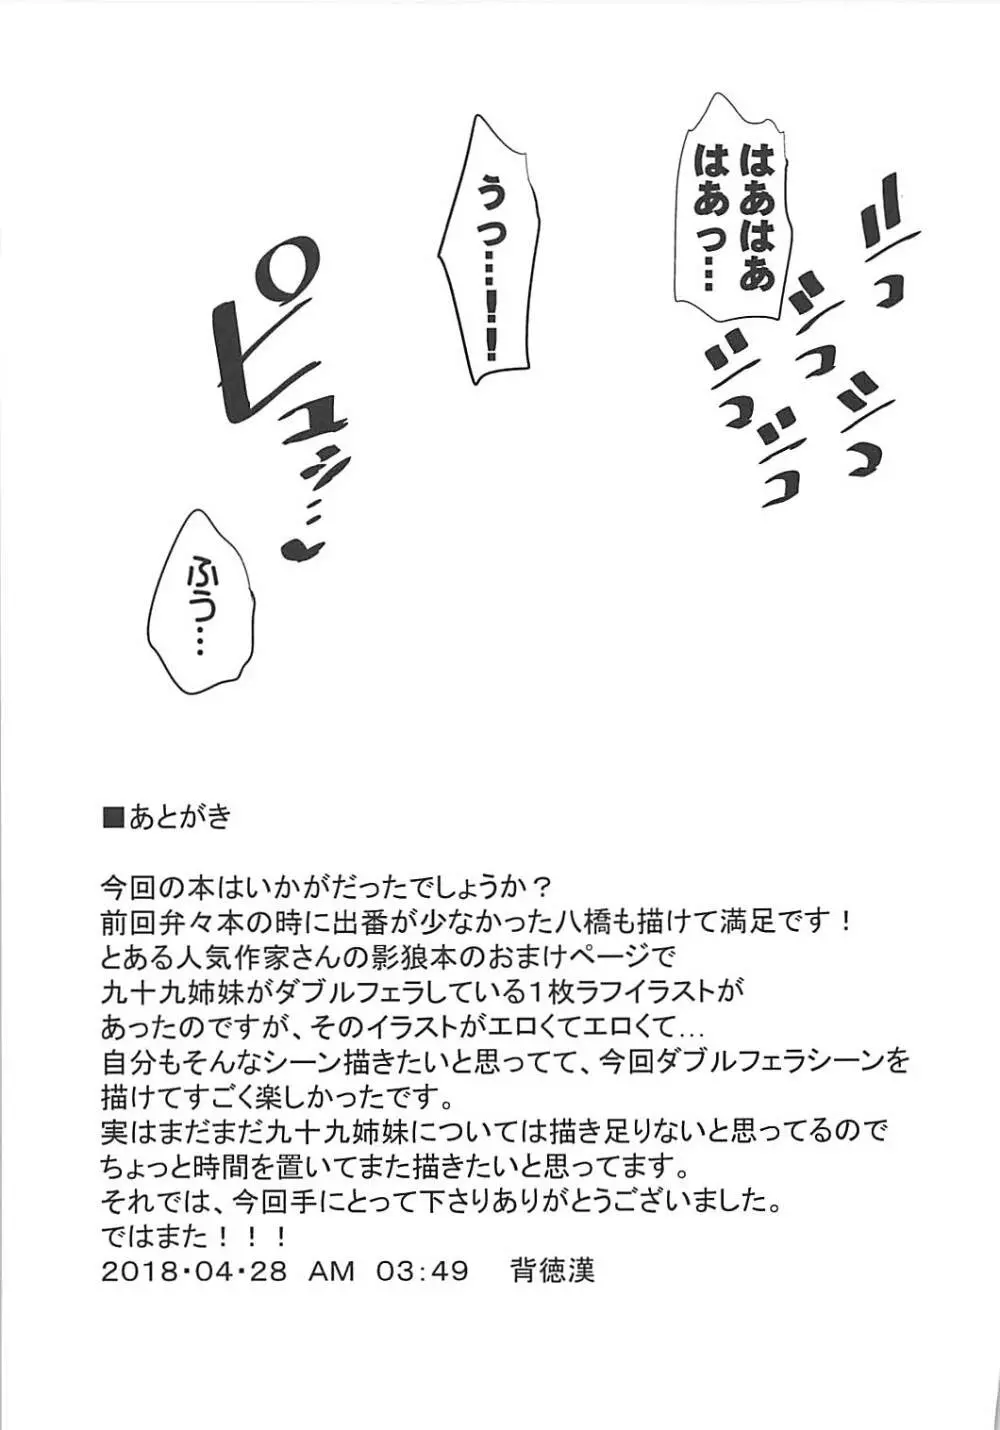 シっ
シっ
シっ
シっ
シっ
はあはあ
はあっ…
うっ…!!
ピュッ…♥
ふぅ…
■あとがき
今回の本はいかがだったでしょうか？
前回弁々本の時に出番が少なかった八橋も描けて満足です！
とある人気作家さんの影狼本のおまけページで
九十九姉妹がダブルフェラしている１枚ラフイラストが
あったのですが、そのイラストがエロくてエロくて…
自分もそんなシーン描きたいと思ってて、今回ダブルフェラシーンを
描けてすごく楽しかったです。
実はまだまだ九十九姉妹については描き足りないと思ってるので
ちょっと時間を置いてまた描きたいと思ってます。
それでは、今回手にとって下さりありがとうございました。
ではまた！！！
２０１８・０４・２８　ＡＭ　０３：４９　背徳漢